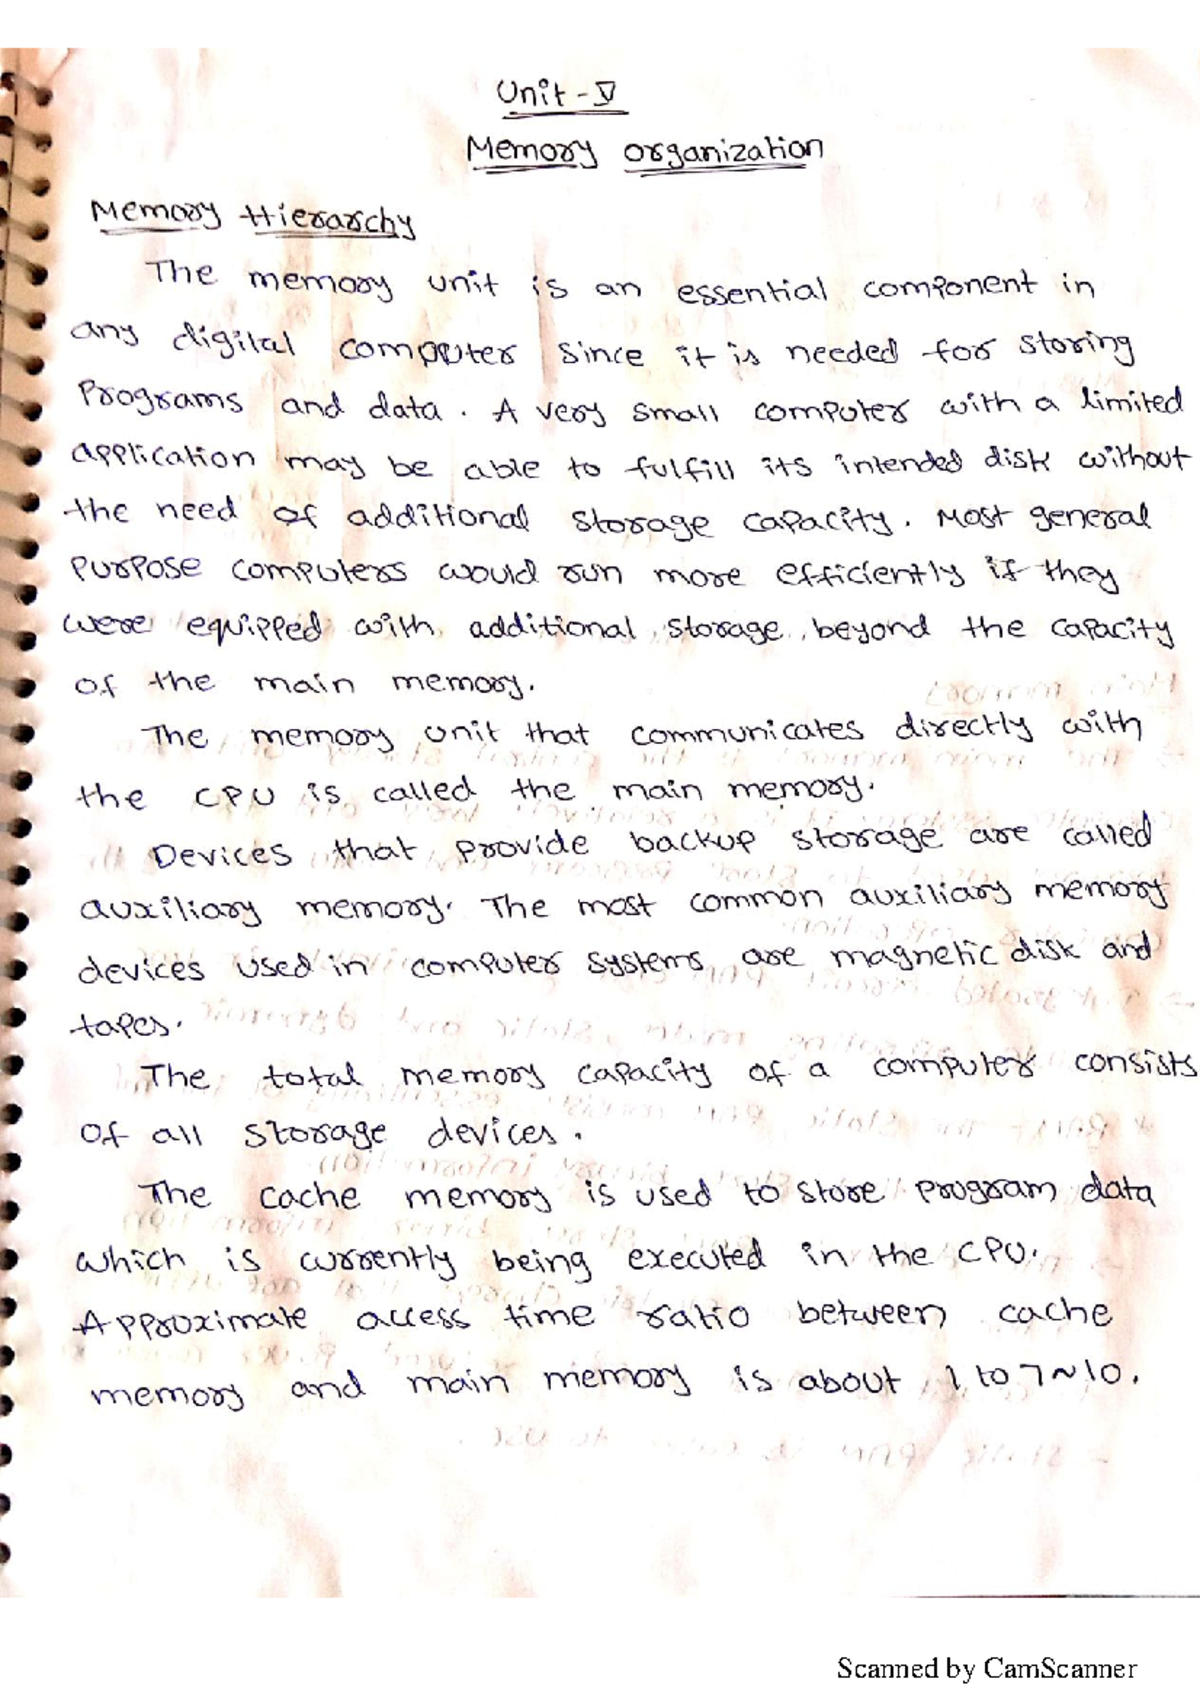 Unit - V
Memory organization
Memory Hierarchy
The memory unit is an essential component in
any digital computer since it is needed for storing
Programs and data. A very small computer with a limited
application may be able to fulfill its intended disk without
the need of additional storage capacity. Most general
purpose computers would run more efficiently if they
were equipped with additional storage beyond the capacity
of the main memory.
The memory unit that communicates directly with
the CPU is called the main memory.
Devices that provide backup storage are called
auxiliary memory. The most common auxiliary memory
devices used in computer systems are magnetic disk and
tapes.
The total memory capacity of a computer consists
of all storage devices.
The cache memory is used to store program data
which is currently being executed in the CPU.
Approximate access time ratio between cache
memory and main memory is about 1 to 7~10.
Scanned by CamScanner